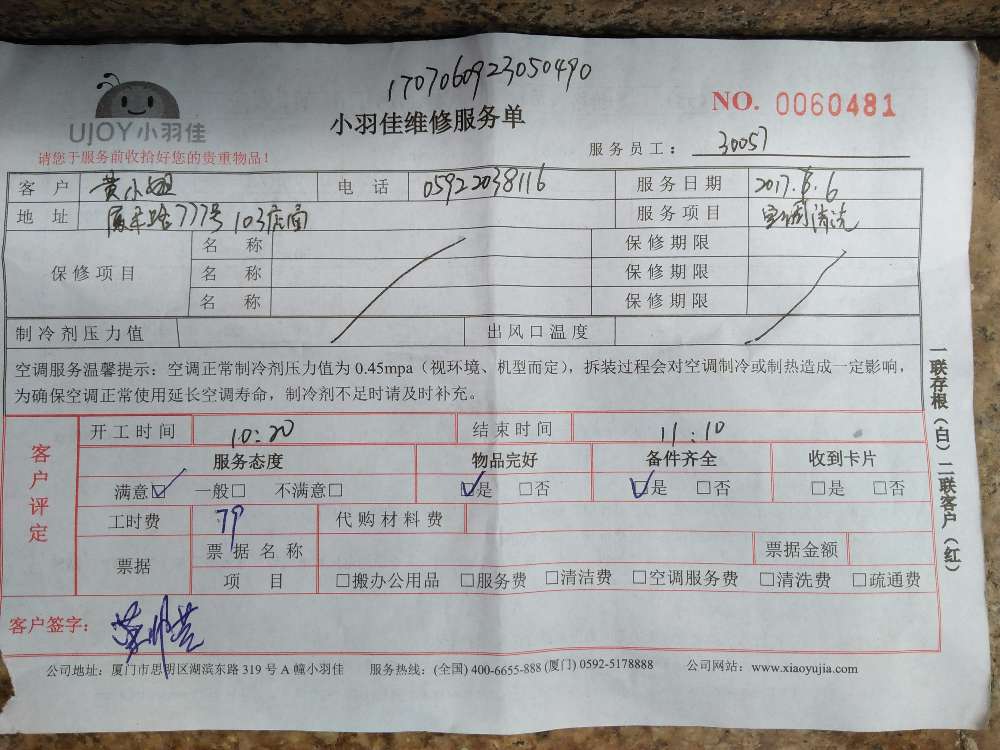 1707060923050490
NO. 0060481
UJOY小羽佳
小羽佳维修服务单
请您于服务前收拾好您的贵重物品！
服务员工： 30057
客户 黄小姐 电话 05922038116 服务日期 2017.6.6
地址 厦禾路777号103店面 服务项目 空调清洗
保修项目
名称 保修期限
名称 保修期限
名称 保修期限
制冷剂压力值 出风口温度
空调服务温馨提示：空调正常制冷剂压力值为 0.45mpa（视环境、机型而定），拆装过程会对空调制冷或制热造成一定影响，
为确保空调正常使用延长空调寿命，制冷剂不足时请及时补充。
客户评定
开工时间 10:20 结束时间 11:10
服务态度 物品完好 备件齐全 收到卡片
满意☑ 一般□ 不满意□ ☑是 □否 ☑是 □否 □是 □否
工时费 79 代购材料费
票据 票据名称 票据金额
项目 □搬办公用品 □服务费 □清洁费 □空调服务费 □清洗费 □疏通费
客户签字：
公司地址：厦门市思明区湖滨东路 319 号 A 幢小羽佳 服务热线：(全国) 400-6655-888 (厦门) 0592-5178888 公司网站：www.xiaoyujia.com
一联存根（白）二联客户（红）